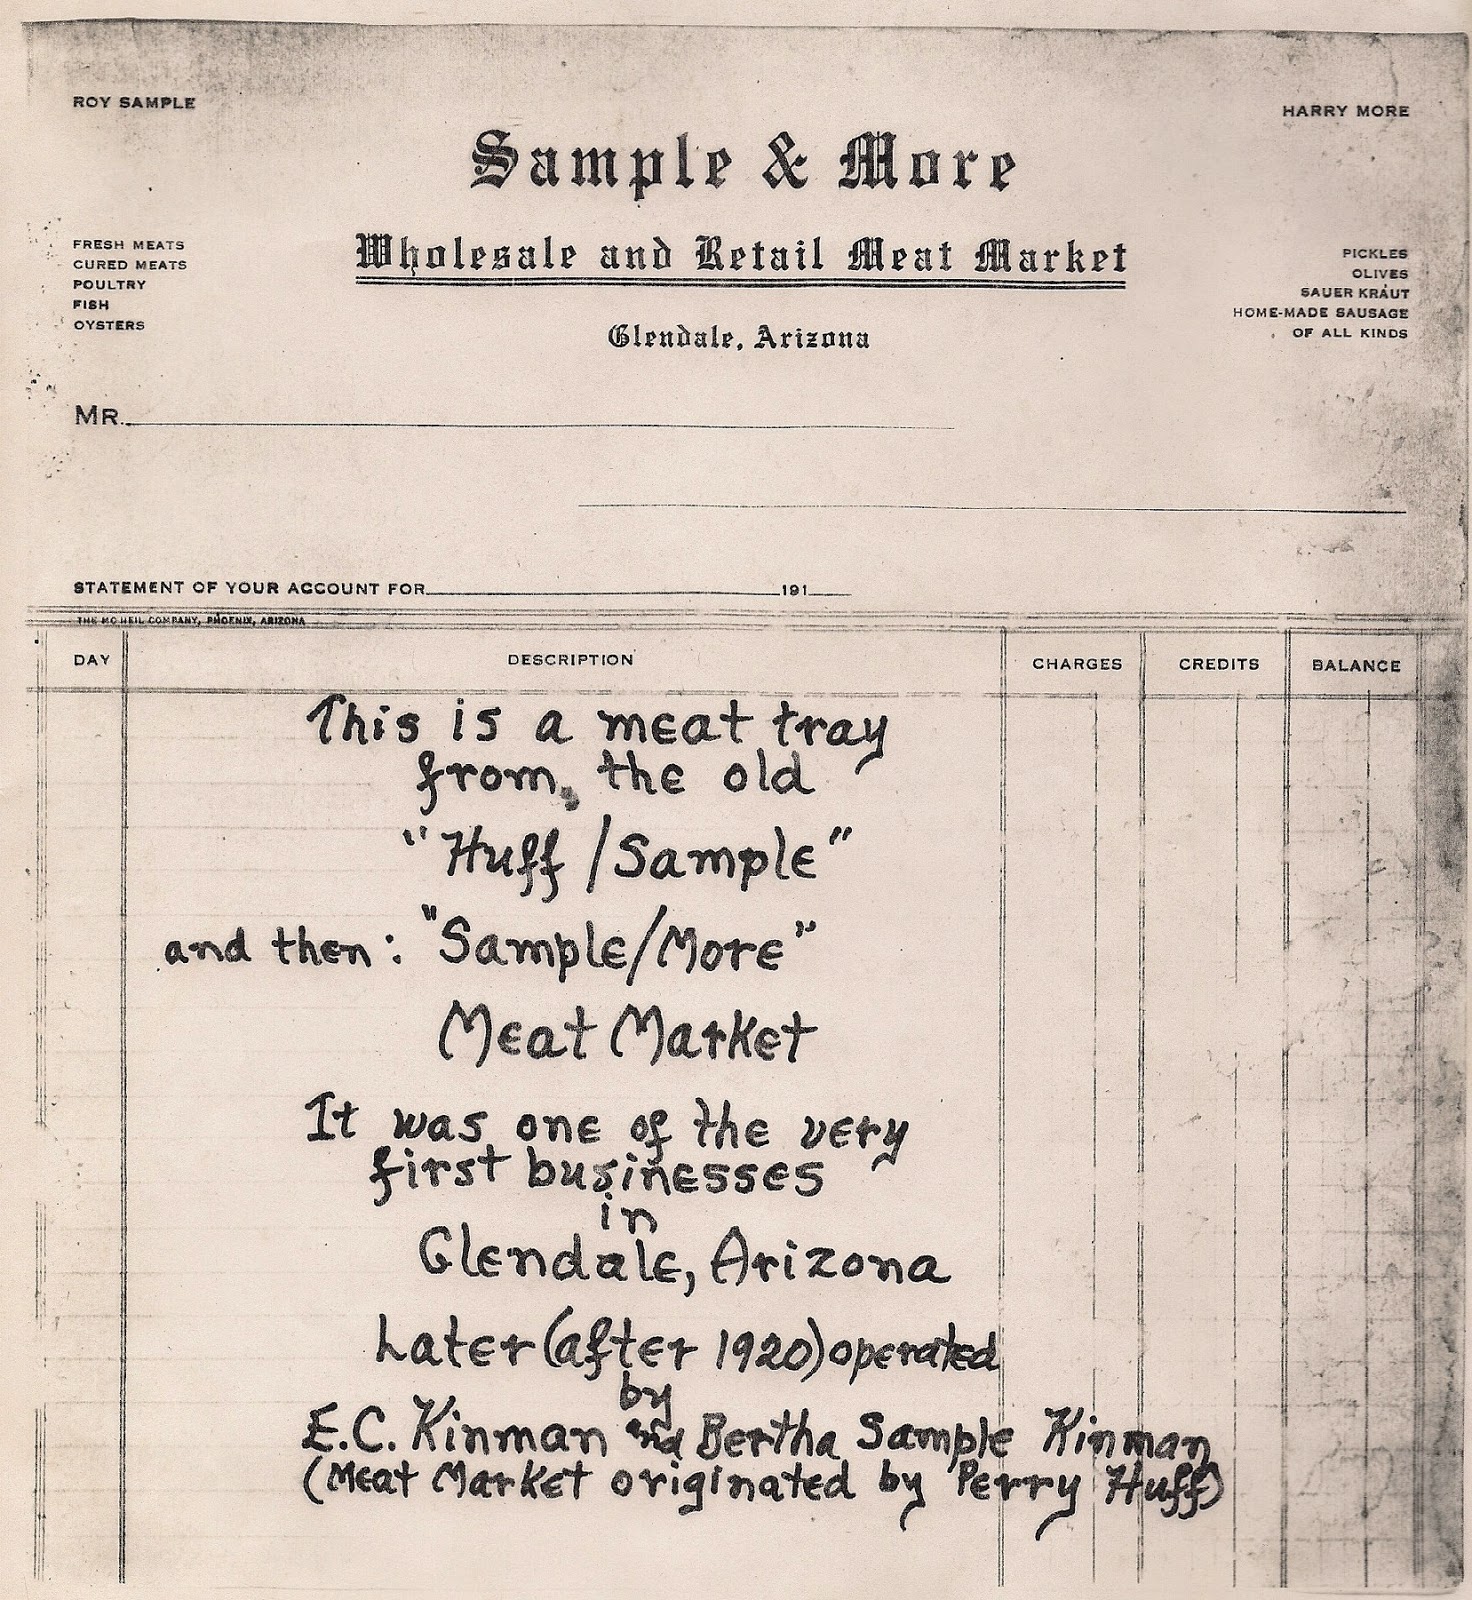 ROY SAMPLE
HARRY MORE
Sample & More
Wholesale and Retail Meat Market
Glendale, Arizona
FRESH MEATS
CURED MEATS
POULTRY
FISH
OYSTERS
PICKLES
OLIVES
SAUER KRAUT
HOME-MADE SAUSAGE
OF ALL KINDS
MR.
STATEMENT OF YOUR ACCOUNT FOR 191
THE MCNEIL COMPANY, PHOENIX, ARIZONA
DAY DESCRIPTION CHARGES CREDITS BALANCE
This is a meat tray
from, the old
"Huff/Sample"
and then: "Sample/More"
Meat Market
It was one of the very
first businesses
in
Glendale, Arizona
Later (after 1920) operated
by
E.C. Kinman and Bertha Sample Kinman
(Meat Market originated by Perry Huff)